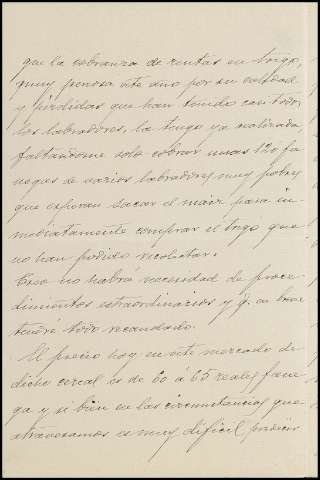 que la cobranza de rentas en trigo,
muy penosa este año por su calidad
y pérdidas que han tenido casi todos
los labradores, la tengo ya realizada,
faltándome solo cobrar unas 120 fa
negas de varios labradores muy pobres
que esperan sacar el maiz para in-
mediatamente comprar el trigo que
no han podido recolectar.
Creo no habrá necesidad de proce-
dimientos extraordinarios y q. en breve
tendré todo recaudado.
El precio hoy en este mercado de
dicho cereal es de 60 á 65 reales fane
ga y si bien en las circunstancias que
atravesamos es muy dificil predecir